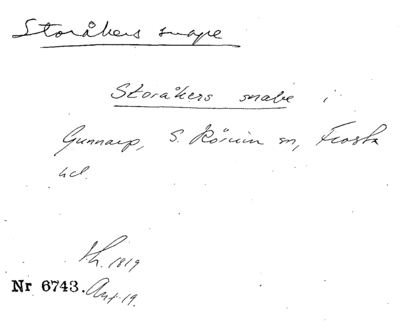 Storåkers snape
Storåkers snabe i
Gunnarp, S. Rörum sn, Frosta
hd.
Sk. 1819
Nr 6743. Ant. 19.